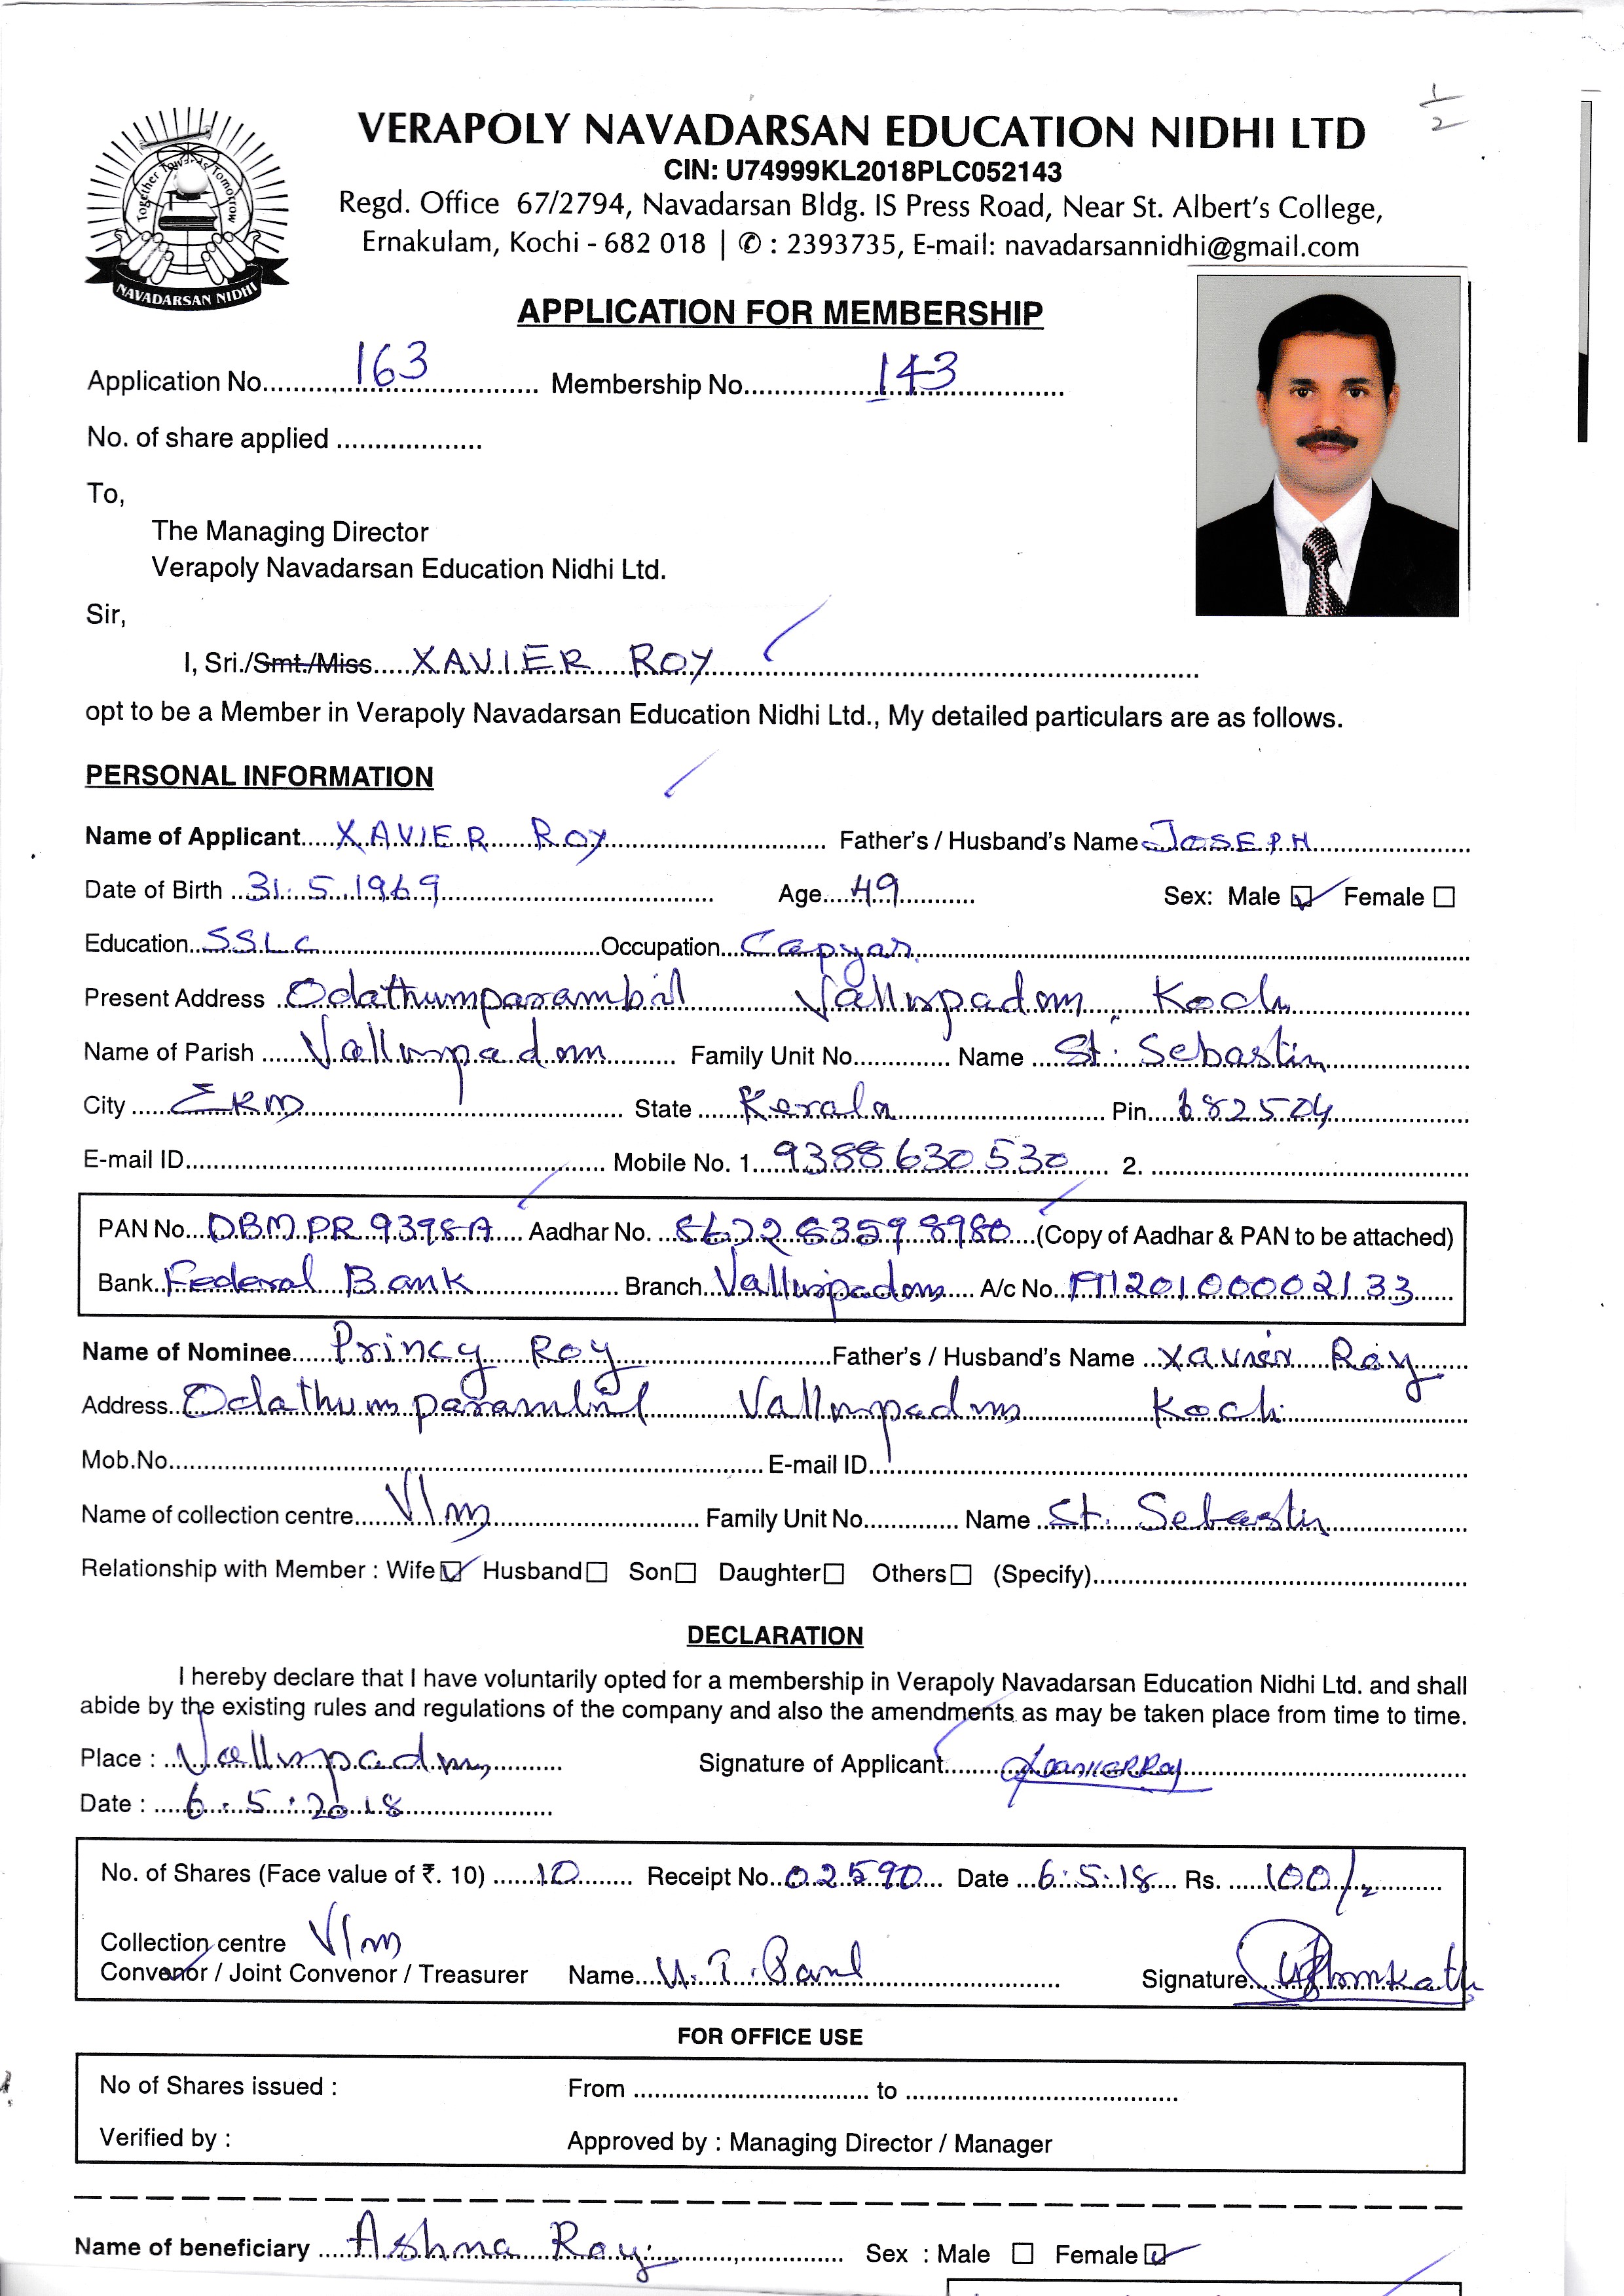 1/2
VERAPOLY NAVADARSAN EDUCATION NIDHI LTD
CIN: U74999KL2018PLC052143
Regd. Office 67/2794, Navadarsan Bldg. IS Press Road, Near St. Albert's College,
Ernakulam, Kochi - 682 018 | ✆ : 2393735, E-mail: navadarsannidhi@gmail.com
Together Towards Tomorrow
NAVADARSAN NIDHI
APPLICATION FOR MEMBERSHIP
Application No. 163 Membership No. 143
No. of share applied
To,
The Managing Director
Verapoly Navadarsan Education Nidhi Ltd.
Sir,
I, Sri./Smt./Miss. XAVIER ROY
opt to be a Member in Verapoly Navadarsan Education Nidhi Ltd., My detailed particulars are as follows.
PERSONAL INFORMATION
Name of Applicant XAVIER ROY Father's / Husband's Name JOSEPH
Date of Birth 31.5.1969 Age 49 Sex: Male ☑ Female ☐
Education SSLC Occupation
Present Address Odathumparambil Vallarpadom Kochi
Name of Parish Vallarpadom Family Unit No. Name St. Sebastin
City EKM State Kerala Pin 682504
E-mail ID Mobile No. 1. 9388630530 2.
PAN No. DBMPR9398A Aadhar No. 8622 6359 8980 (Copy of Aadhar & PAN to be attached)
Bank Federal Bank Branch Vallarpadom A/c No.
Name of Nominee Princy Roy Father's / Husband's Name Xavier Roy
Address Odathumparambil Vallarpadom Kochi
Mob.No. E-mail ID
Name of collection centre Vlm Family Unit No. Name St. Sebastin
Relationship with Member : Wife ☑ Husband ☐ Son ☐ Daughter ☐ Others ☐ (Specify)
DECLARATION
I hereby declare that I have voluntarily opted for a membership in Verapoly Navadarsan Education Nidhi Ltd. and shall
abide by the existing rules and regulations of the company and also the amendments as may be taken place from time to time.
Place : Vallarpadom Signature of Applicant XAVIER ROY
Date : 6.5.2018
No. of Shares (Face value of ₹. 10) 10 Receipt No. 02590 Date 6.5.18 Rs. 100/-
Collection centre Vlm
Convenor / Joint Convenor / Treasurer Name U.T. Paul Signature
FOR OFFICE USE
No of Shares issued : From to
Verified by : Approved by : Managing Director / Manager
Name of beneficiary Ashna Roy Sex : Male ☐ Female ☑